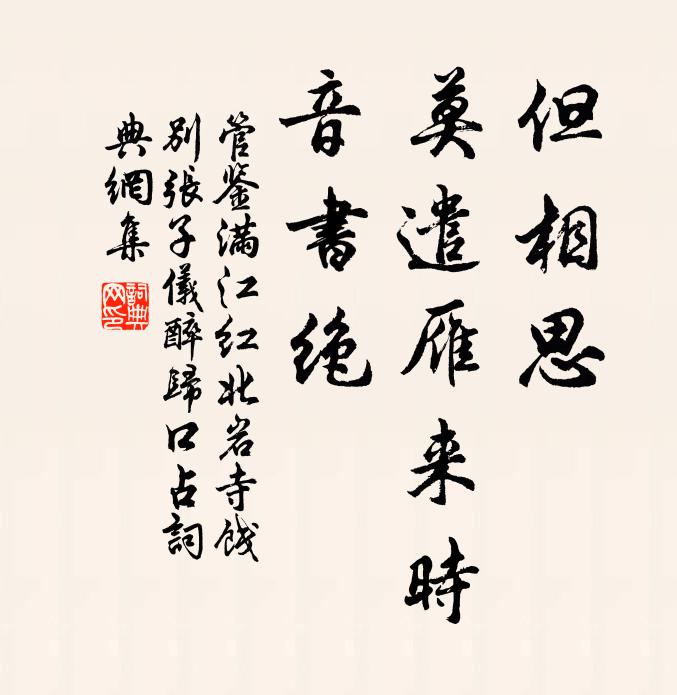 但相思
莫遣雁来時
音書绝
管鉴满江红北岩寺饯
别張子儀醉歸口占詞
典網集
詞典网印